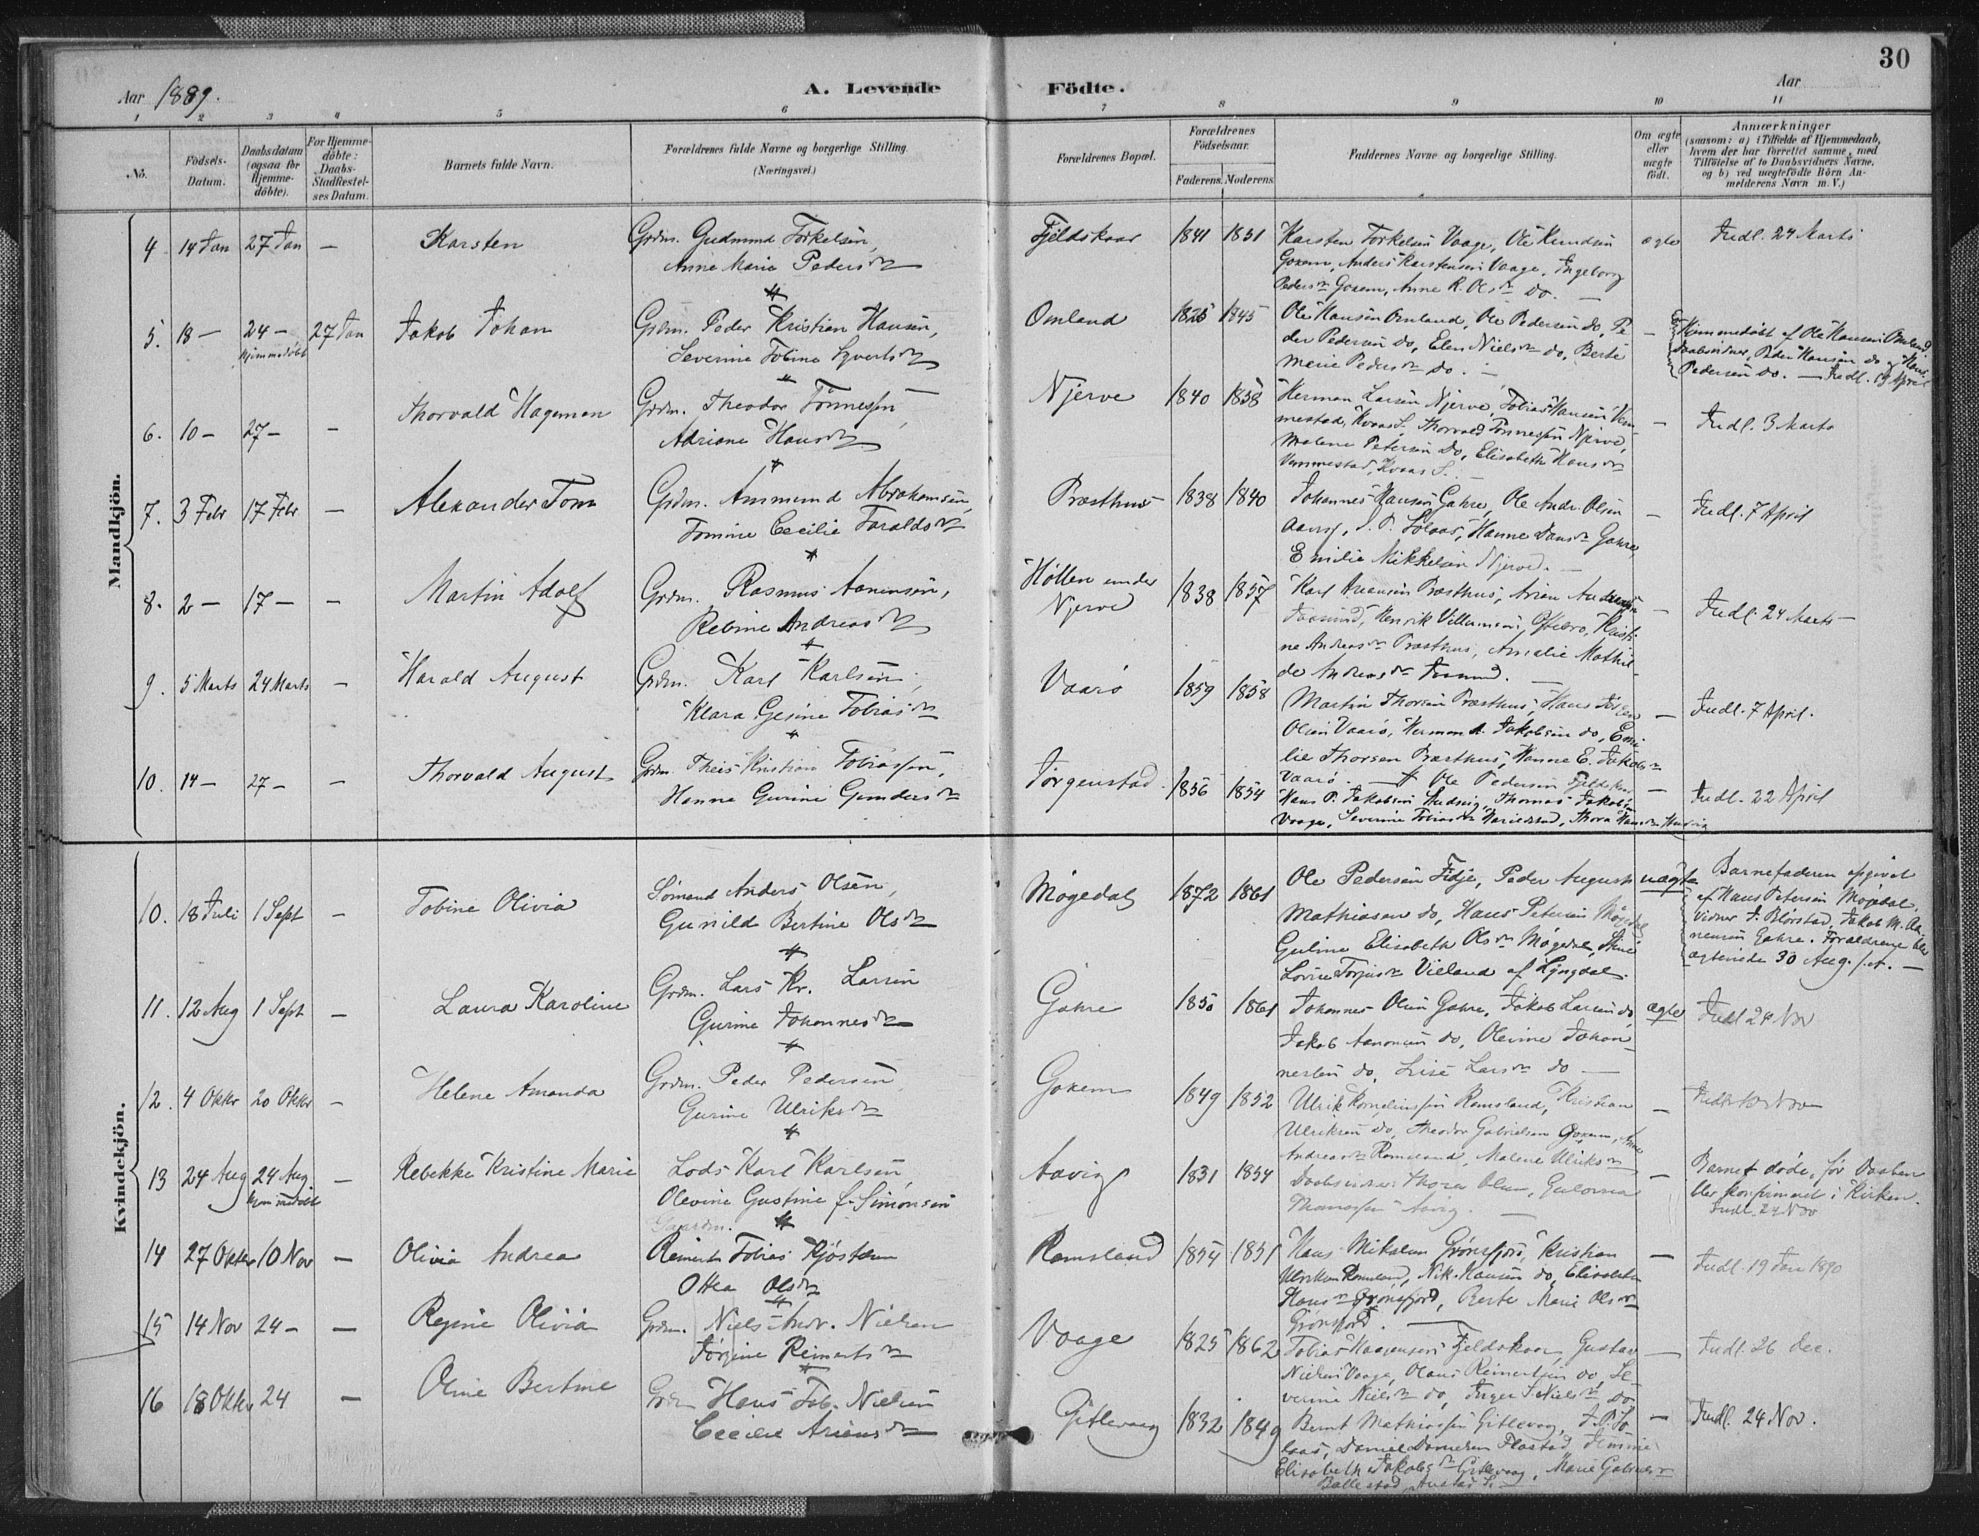 30
Aar 1889.
A. Levende Födte.
Aar
1 2 3 4 5 6 7 8 9 10 11
No.
Födsels-Datum.
Daabsdatum (ogsaa for Hjemme-döbte).
For Hjemme-döbte: Daabs-Stadfæstel-ses Datum.
Barnets fulde Navn.
Forældrenes fulde Navne og borgerlige Stilling. (Næringsvei.)
Forældrenes Bopæl.
Forældrenes Födselsaar.
Faderens. Moderens.
Faddernes Navne og borgerlige Stilling.
Om ægte eller uægte födt.
Anmærkninger
(saasom: a) i Tilfælde af Hjemmedaab, hvem der har forrettet samme, med Tilföielse af to Daabsvidners Navne, og b) ved uægtefödte Börn An-melderens Navn m. V.)
Mandkjön.
4 14 Jan 27 Jan — Karsten
Grdm. Gudmund Torkelsen,
Anne Marie Pedersdn
Fjeldskaar 1841 1851
Karsten Torkelsen Vaage, Ole Knudsen
Goxem, Anders Karstensen Vaage, Ingeborg
Pedersdn Goxem, Anne R. Olsdn do. —
ægte
Indl. 24 Marts
5. 18 — 24 — Hjemmedöbt 27 Jan Jakob Johan
Grdm. Peder Kristian Hansen,
Severine Tobine Syvertsdn
Omland 1825 1845
Ole Hansen Omland, Ole Pedersen do, Pe-
der Pedersen do, Elen Nielsdn do, Berte
Marie Pedersdn do. —
Hjemmedöbt af Ole Hansen Omland
Daabsvidner, Peder Hansen do og Hans
Pedersen do. — Indl. 19 April
6. 10 — 27 — — Thorvald Hageman
Grdm. Theodor Tönnessen,
Adriane Hansdn
Njerve 1840 1858
Herman Larsen Njerve, Tobias Hansen Vem-
mestad, Kvaas S., Thorvald Tönnessen Njerve,
Malene Petersen do, Elisabeth Hansdn
Vemmestad, Kvaas S.
Indl. 3 Marts
7. 3 Febr 17 Febr — Alexander Tom
Grdm. Ammund Abrahamsen,
Tomine Cecilie Taraldsdn
Præsthus 1838 1840
Johannes Hansen Gahre, Ole Andr. Olsen
J. P. Solaas, Hanne Gahre,
Emilie Mikkelsen Njerve. —
Indl. 7 April
8. 2 — 17 — — Martin Adolf
Grdm. Rasmus Aanensen,
Rebine Andreasdn
Höllen under
Njerve
1838 1857
Karl Præsthus, Arian
Henrik Villumsen, Kristi-
ne Andreasdn Præsthus, Amalie Mathil-
de Andreasdn
Indl. 24 Marts —
9. 5 Marts 24 Marts — Harald August
Grdm. Karl Karlsen,
Klara Gesine Tobiasdn
Vaarö 1859 1858
Martin Thorsen Præsthus, Hans
Olsen Vaarö, Herman Jakobsen do, Emi-
lie Thorsen Præsthus, Hanne E. Jakobsdn
Vaarö. —
Indl. 7 April.
10. 14 — 27 — — Thorvald August
Grdm. Theis Kristian Tobiassen,
Hanna Gurine Gundersdn
Jörgenstad 1856 1854
Ole Pedersen Fjeldskar
Hans P. Jakobsen Thomas Jakobsen
Vaage, Severine Tobiasdn Thora Hansdn
Indl. 22 April
Kvindekjön.
10. 18 Juli 1 Sept — Tobine Olivia
Sömand Anders Olsen,
Gunild Bertine Olsdn
Mögedal 1872 1861
Ole Pedersen Fidje, Peder August
Mathiasen do, Hans Petersen Mögedal
Guline Elisabeth Olsdn Mögedal,
Lovise Torjusdn Vieland af Lyngdal.
uægte
Barnefaderen opgivet
af Hans Petersen Mögedal,
Vidner J. Blörstad, Jakob M. Aa-
nensen Gahre. Forældrene blev
ægteviede 30 Aug. s. A. —
11. 12 Aug 1 Sept — Laura Karoline
Grdm. Lars Kr. Larsen
Gurine Johannesdn
Gahre 1850 1861
Johannes Olsen Gahre, Jakob Larsen do,
Jakob Aanensen do, Olevine Johan-
nessen do, Lise Larsdn do —
ægte
Indl 24 Nov
12. 4 Oktbr 20 Oktbr — Helene Amanda
Grdm. Peder Pedersen,
Gurine Ulriksdn
Goxem 1849 1852
Ulrik Korneliussen Ramsland, Kristian
Ulriksen do, Theodor Gabrielsen Goxem, Anne
Andreasdn Ramsland, Malene Ulriksdn
13 24 Aug 24 Aug hjemmedöbt — Rebekke Kristine Marie
Lods Karl Karlsen
Olevine Gustine f. Simonsen
Aavig 1831 1854
Daabsvidner: Thora Olsen, Gulovna
Thomassen Aavig. —
Barnet döde, för Daaben
blev konfirmeret i Kirken.
Indl. 24 Nov
14 27 Oktbr 10 Nov — Olivia Andrea
Gaardm.
Reinert Tobias Kjöstelsen
Otta Olsdn
Ramsland 1854 1851
Hans Mikalsen Grönsfjord, Kristian
Ulriksen Ramsland, Nik. Hansen do, Elisabeth
Hansdn Grönsfjord, Berte Marie Olsdn
Grönsfjord. —
Indl. 19 Jan 1890
15 14 Nov 24 — — Regine Olivia
Grdm. Niels Andr. Nielsen
Jörgine Reinertsdn
Vaage 1825 1862
Tobias Haagensen Fjeldskaar Gustav
Nielsen Vaage, Olaus Reinertsen do, Se-
verine Nielsdn do, Inger S Nielsdn do
Indl. 26 dec.
16 18 Oktbr 24 — Oline Bertine
Grdm Hans Tob. Nielsen
Cecilie Ariensdn
Gitlevaag 1832 1849
Bernt Mathiassen Gitlevaag, J. P. So-
laas, Daniel Danielsen Flastad,
Elisabeth Jakobsdn Gitlevaag, Marie Gabrielsdn
Ballestad, Austad S. —
Indl. 24 Nov.